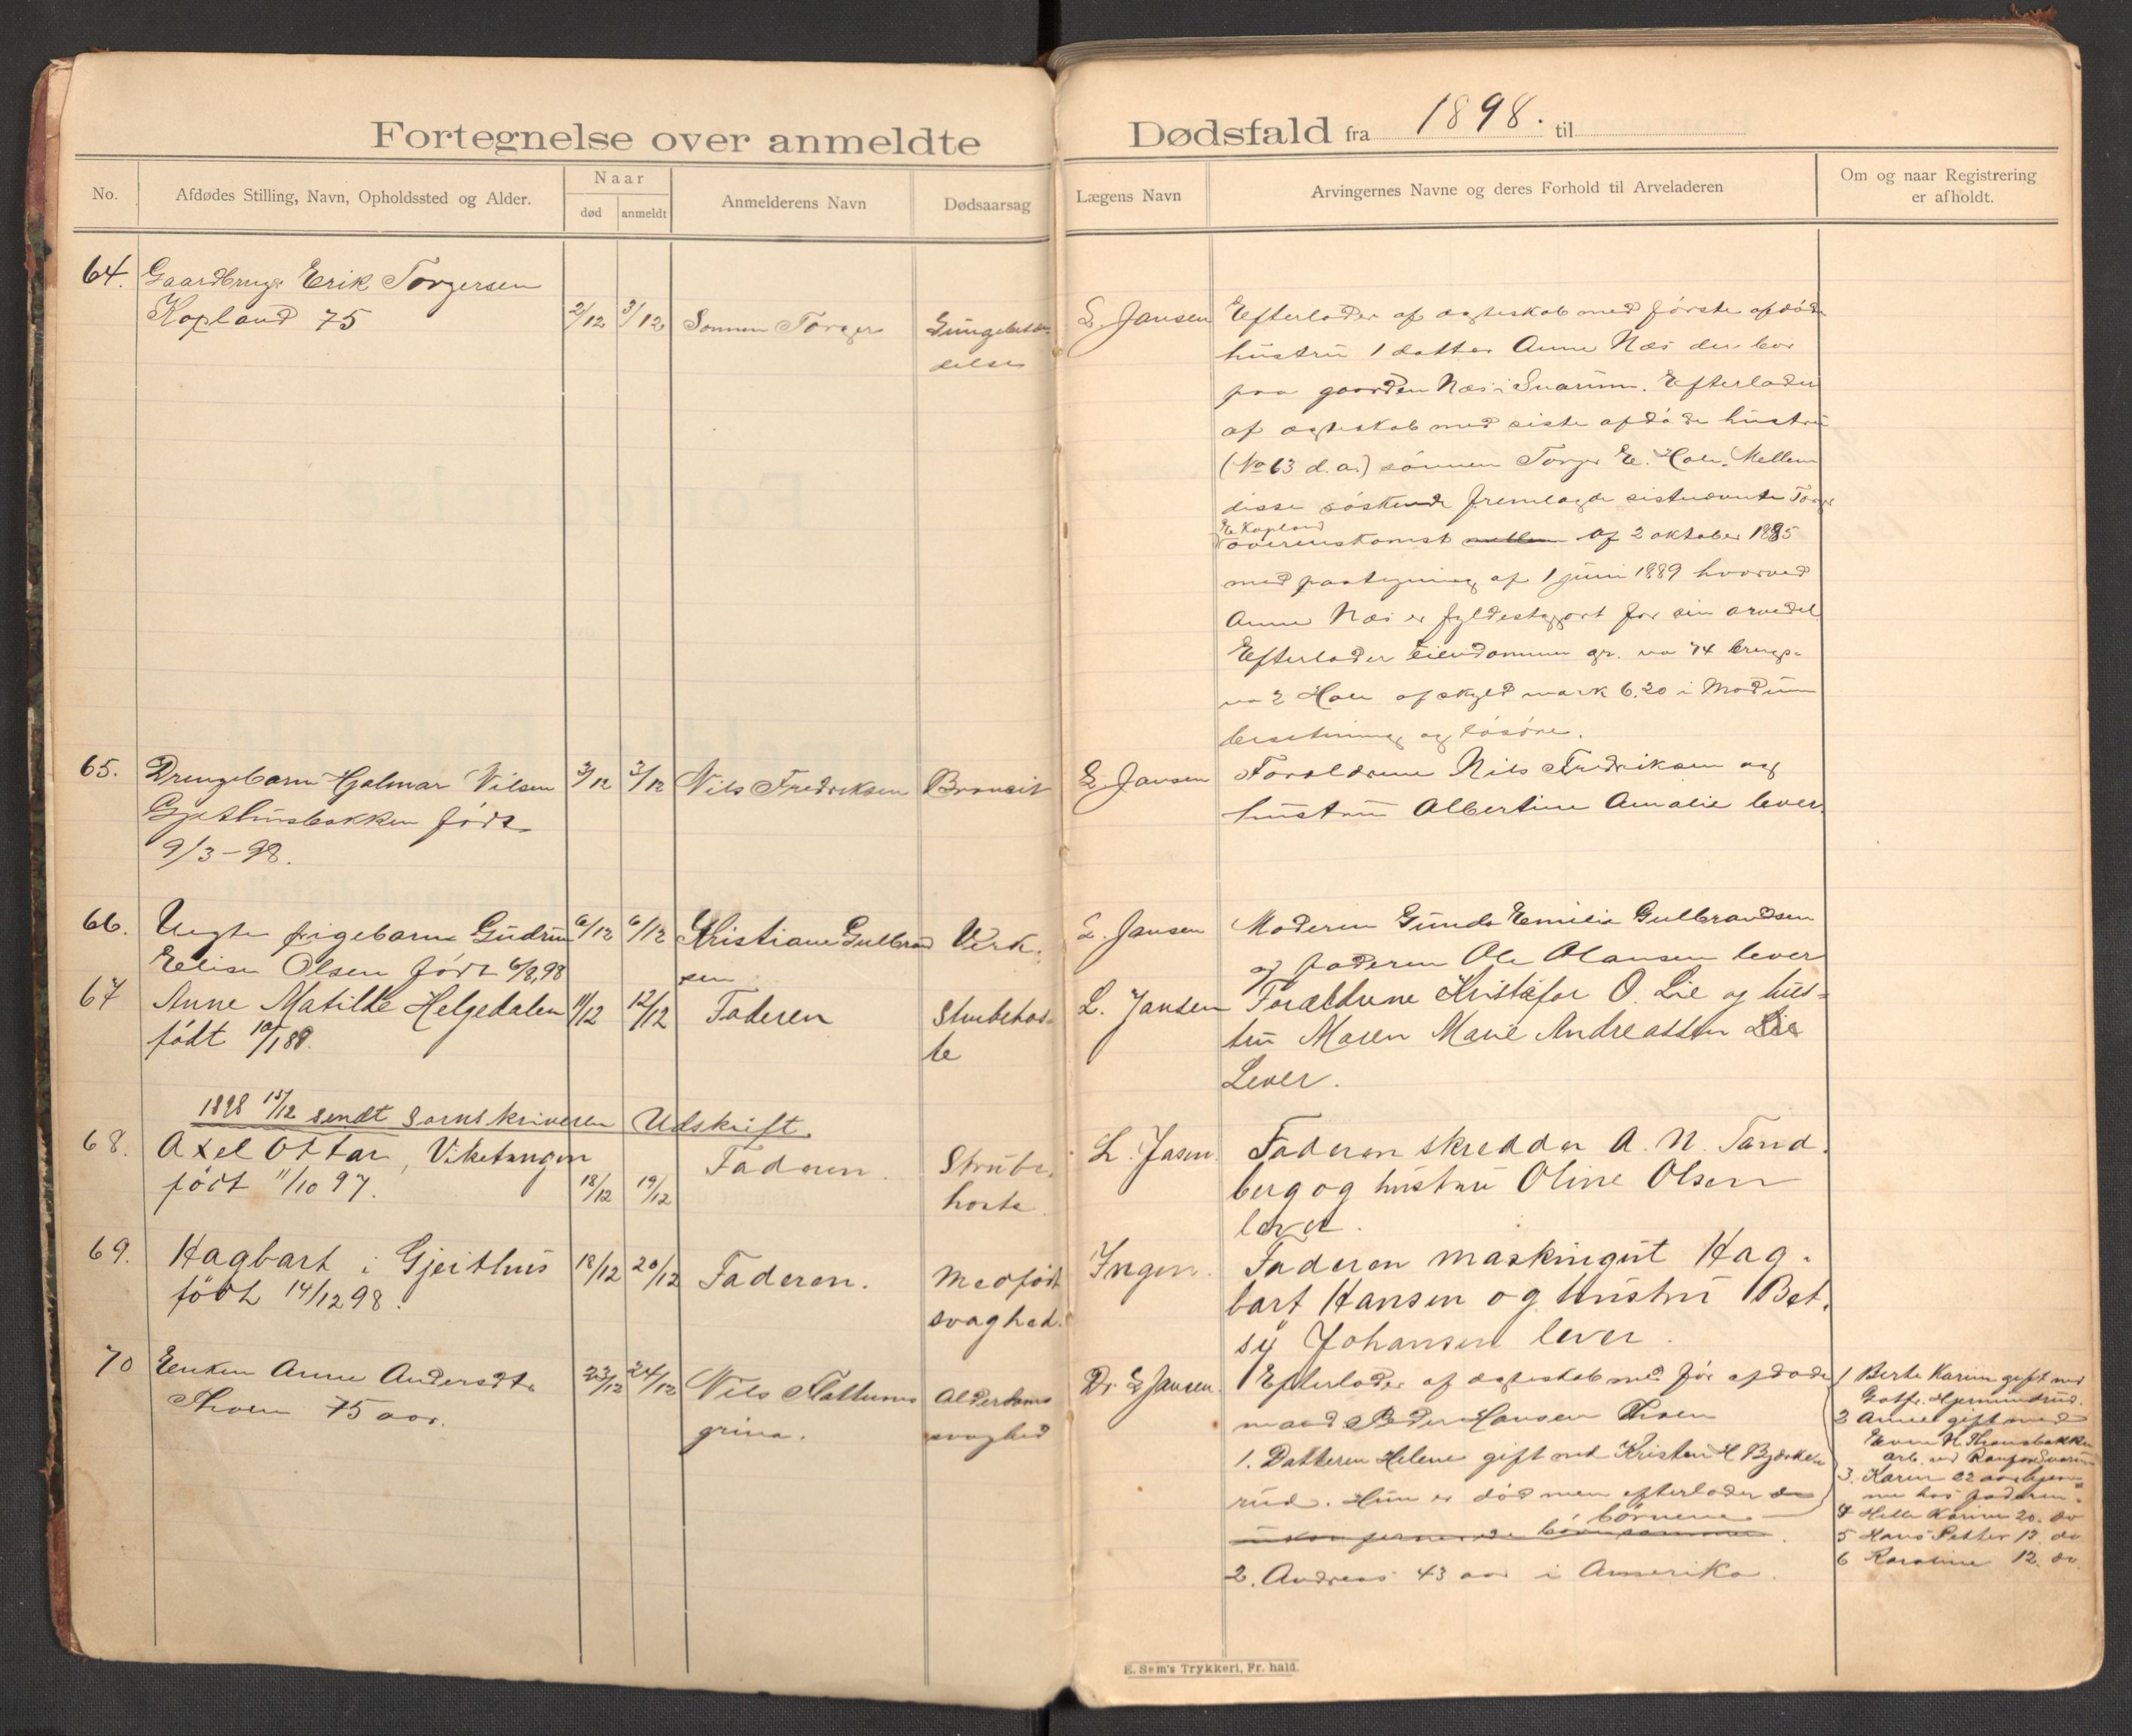 Fortegnelse over anmeldte
Dødsfald fra 1898. til
No.
Afdødes Stilling, Navn, Opholdssted og Alder.
Naar
død
anmeldt
Anmelderens Navn
Dødsaarsag
Lægens Navn
Arvingernes Navne og deres Forhold til Arveladeren
Om og naar Registrering
er afholdt.
64. Gaardbruger Erik Torgersen
Kopland 75
2/12 3/12 Sønnen Torger
L. Jansen
Efterlader af ægteskab med første afdøde
hustru 1 datter Anne Næs der bor
paa gaarden Næs i Snarum. Efterlader
af ægteskab med siste afdøde hustru
(No 63 d.a.) sønnen Torger E. Hole. Mellem
disse søskende fremlagde sistnævnte Torger
E. Kopland
overenskomst mellem af 2 oktober 1885
med paategning af 1 juni 1889 hvorved
Anne Næs er fyldestgjort for sin arvedel
Efterlader eiendommen gr. no 74 brugs-
no 2 Hole af skyld mark 6.20 i Modum
besætning og løsøre.
65. Drengebarn Hjalmar Nilsen
Gjethusbakken født
9/3-98.
3/12 3/12 Nils Fredriksen
L. Jansen
Forældrene Nils Fredriksen og
hustru Albertine Amalie lever.
66. Uegte pigebarn Gudrun
Elise Olsen født 6/8,98
6/12 6/12 Kristiane Gulbrand
sen
Værk.
L. Jansen
Moderen Gunda Emilie Gulbrandsen
og faderen Ole Olausen lever
67 Anne Matilde Helgedalen
født 10/1 88.
11/12 12/12 Faderen
Strubehos-
te
L. Jansen
Forældrene Kristofar O. Lie og hus-
tru Maren Marie Andreassen Lie
Lever.
1898 15/12 sendt sorenskriveren Udskrift.
68. Axel Ottar, Viketangen
født 11/10 97.
18/12 19/12
Faderen.
Strube-
hoste
L. Jasen.
Faderen skredder A. N. Tand.
berg og hustru Oline Olsen
lever.
69. Hagbart i Gjeithus
født 14/12 98.
18/12 20/12 Faderen.
Medfødt
svaghed.
Ingen.
Faderen maskingut Hag.
bart Hansen og hustru Bet.
sy Johansen lever.
70 Enken Anne Andersdtr.
Thoen 75 aar.
23/12 24/12
Nils Flattums
grina.
Alderdoms
svaghed
Dr. L Jansen.
Efterlader af ægteskab med før afdøde
mand Peder Hansen Thoen
1. Datteren Helene gift med Kristen H Bjørke
rud. Hun er død men efterlader
børnene
2. Andreas 43 aar i Amerika.
1 Berte Karine gift med
2 Anne gift med
3. Karen 22 aar hjem-
me hos faderen
4 Helle Karine 20. do
5 Hans Petter 17. do
6 Karoline 12. do.
E. Sem's Trykkeri, Fr. hald.